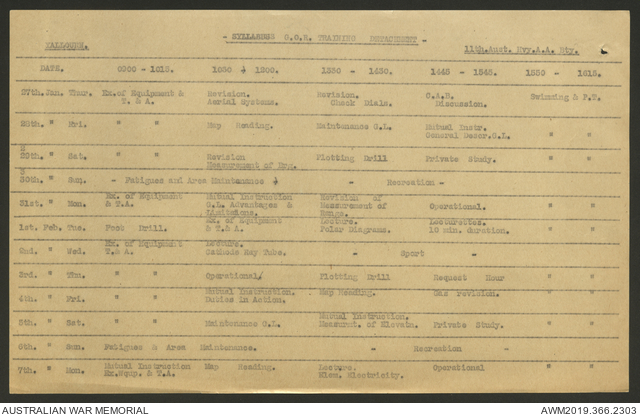 - SYLLABUSS G.O.R. TRAINING DETACHMENT -
11th.Aust. Hvy.A.A. Bty.
DATE. 0900 - 1015. 1030 - 1200. 1330 - 1430. 1445 - 1545. 1550 - 1615.
27th. Jan. Thur. Ex.of Equipment & Revision. Revision. C.A.S. Swimming & P.T.
T. & A. Aerial Systems. Check Dials. Discussion.
28th. " Fri. " " Map Reading. Maintenance G.L. Mutual Instr. " "
General Descr.G.L.
29th. " Sat. " " Revision Plotting Drill Private Study. " "
Measurement of Brg.
30th. " Sun. - Fatigues and Area Maintenance - Recreation -
31st. " Mon. Ex. of Equipment Mutual Instruction Revision of Operational. " "
& T.A. G.L. Advantages & Measurement of
Limitsions. Range.
1st. Feb. Tue. Foot Drill. Ex. of Equipment Lecture. Lecturettes. " "
& T.& A. Polar Diagrams. 10 min. duration.
2nd. " Wed. Ex. of Equipment Lecture. - Sport - " "
T.& A. Cathode Ray Tube.
3rd. " Thu. " " Operational Plotting Drill Request Hour " "
4th. " Fri. " " Mutual Instruction. Map Reading. Gas revision. " "
Duties in Action.
5th. " Sat. " " Maintenance G.L. Mutual Instruction. Private Study. " "
Measuremt. of Elevatn.
6th. " Sun. Fatigues & Area Maintenance. - Recreation -
7th. " Mon. Mutual Instruction Map Reading. Lecture. Operational " "
Ex.Equp. & T.A. Elem. Electricity.
AUSTRALIAN WAR MEMORIAL AWM2019.366.2303